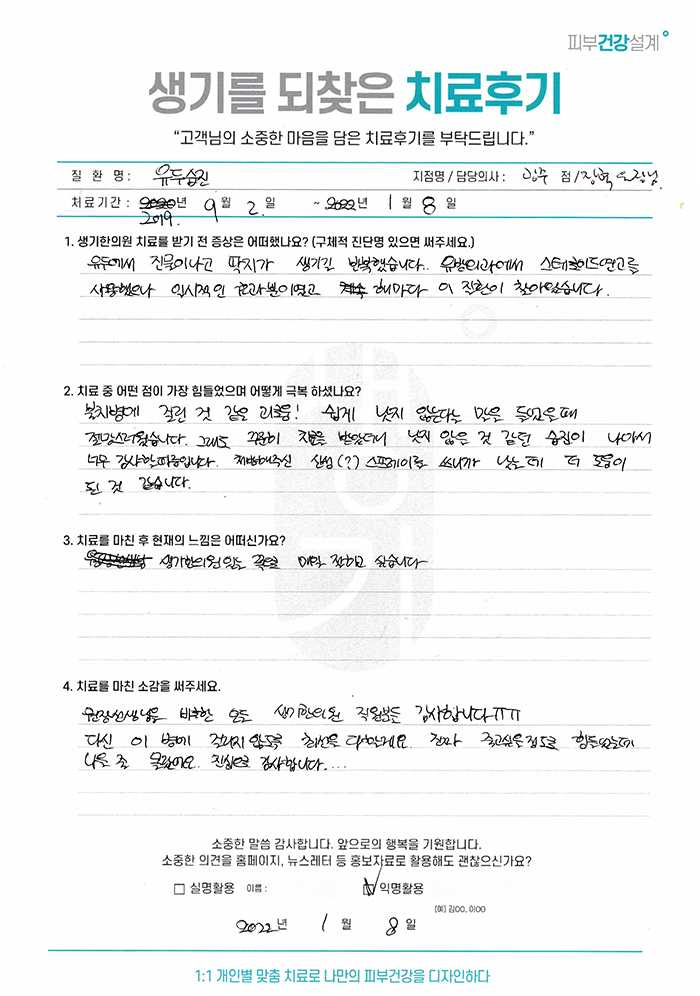 피부건강설계
생기를 되찾은 치료후기
"고객님의 소중한 마음을 담은 치료후기를 부탁드립니다."
질 환 명 : 유두습진 지점명 / 담당의사 : 점 /
치료기간 : 2020년 9월 2.일 ~ 2022년 1월 8일
2019.
1. 생기한의원 치료를 받기 전 증상은 어떠했나요? (구체적 진단명 있으면 써주세요.)
유두에서 진물이나고 딱지가 생기길 반복했습니다. 유방외과에서 스테로이드연고를
사용했으나 일시적인 효과뿐이었고 계속 해마다 이 질환이 찾아왔습니다.
2. 치료 중 어떤 점이 가장 힘들었으며 어떻게 극복 하셨나요?
불치병에 걸린 것 같은 괴로움! 쉽게 낫지 않는다는 말을 들었을때
절망스러웠습니다. 그래도 꾸준히 치료를 받았더니 낫지 않을 것 같던 습진이 나아서
너무 감사한마음입니다. 처방해주신 (?) 스프레이를 쓰니까 낫는데 더 도움이
된 것 같습니다.
3. 치료를 마친 후 현재의 느낌은 어떠신가요?
생기한의원 있는 쪽으로 매일 절하고 싶습니다
4. 치료를 마친 소감을 써주세요.
원장선생님을 비롯한 모든 생기한의원 직원분들 감사합니다ㅠㅠ
다신 이 병에 걸리지 않도록 최선을 다할게요. 진짜 죽고싶을정도로 힘들었는데
나을 줄 몰랐어요. 진심으로 감사합니다...
소중한 말씀 감사합니다. 앞으로의 행복을 기원합니다.
소중한 의견을 홈페이지, 뉴스레터 등 홍보자료로 활용해도 괜찮으신가요?
실명활용 이름 : 익명활용
[예] 김OO, 이OO
2022년 1월 8일
1:1 개인별 맞춤 치료로 나만의 피부건강을 디자인하다